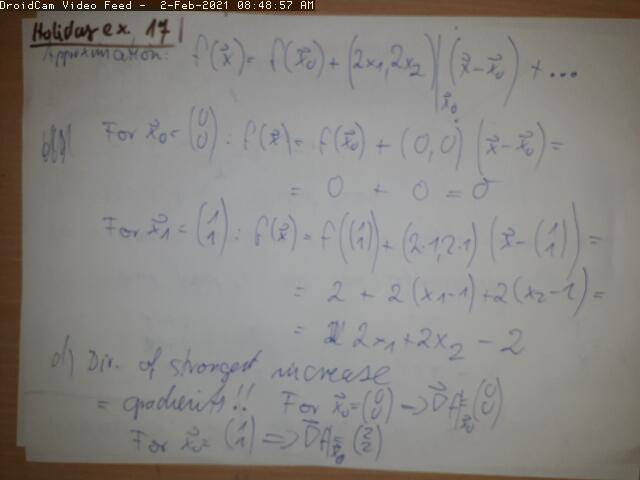 DroidCam Video Feed - 2-Feb-2021 08:48:57 AM
Holiday ex. 17
Approximation: f(x⃗) = f(x⃗₀) + (2x₁, 2x₂)|x⃗₀ (x⃗ - x⃗₀) + ...
For x⃗₀ = (0 0) : f(x⃗) = f(x⃗₀) + (0,0) (x⃗ - x⃗₀) =
= 0 + 0 = 0
For x⃗₁ = (1 1) : f(x⃗) = f((1 1)) + (2·1, 2·1) (x⃗ - (1 1)) =
= 2 + 2(x₁-1) + 2(x₂-1) =
= 2x₁ + 2x₂ - 2
d) Dir. of strongest increase
= gradients!! For x⃗₀ = (0 0) => ∇⃗f|x⃗₀ = (0 0)
For x⃗₀ = (1 1) => ∇⃗f|x⃗₀ = (2 2)